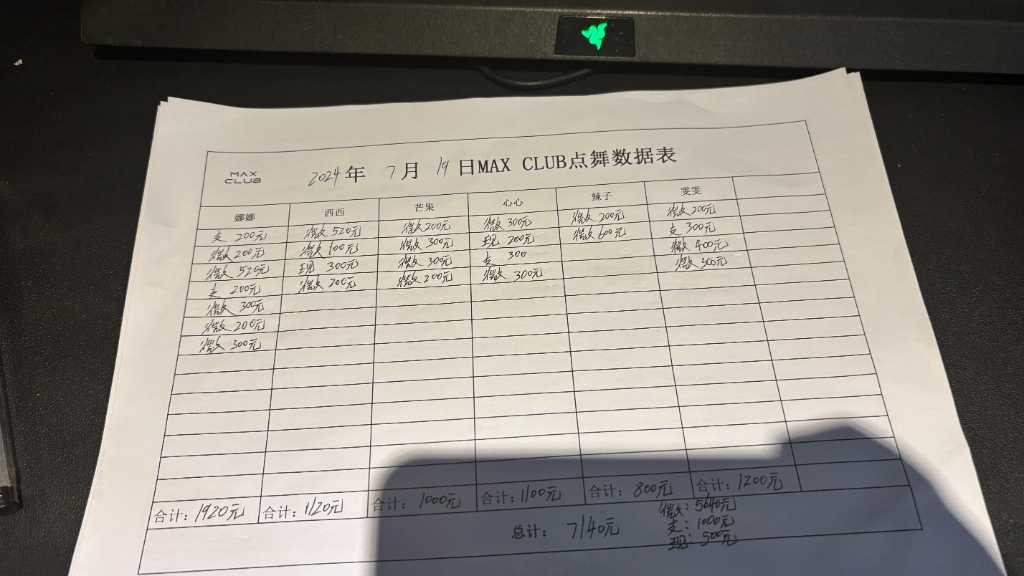 MAX
CLUB
2024年 7月 19日MAX CLUB点舞数据表
娜娜 西西 芒果 心心 辣子 雯雯
支 200元 微众 520元 微众 200元 微众 300元 微众 200元 微众 200元
微众 200元 微众 100元 微众 300元 现 200元 微众 600元 支 300元
微众 520元 现 300元 微众 300元 支 300 微众 400元
支 200元 微众 200元 微众 200元 微众 300元 微众 300元
微众 300元
微众 200元
微众 300元
合计: 1920元 合计: 1120元 合计: 1000元 合计: 1100元 合计: 800元 合计: 1200元
总计: 7140元
微众: 5640元
支: 1000元
现: 500元